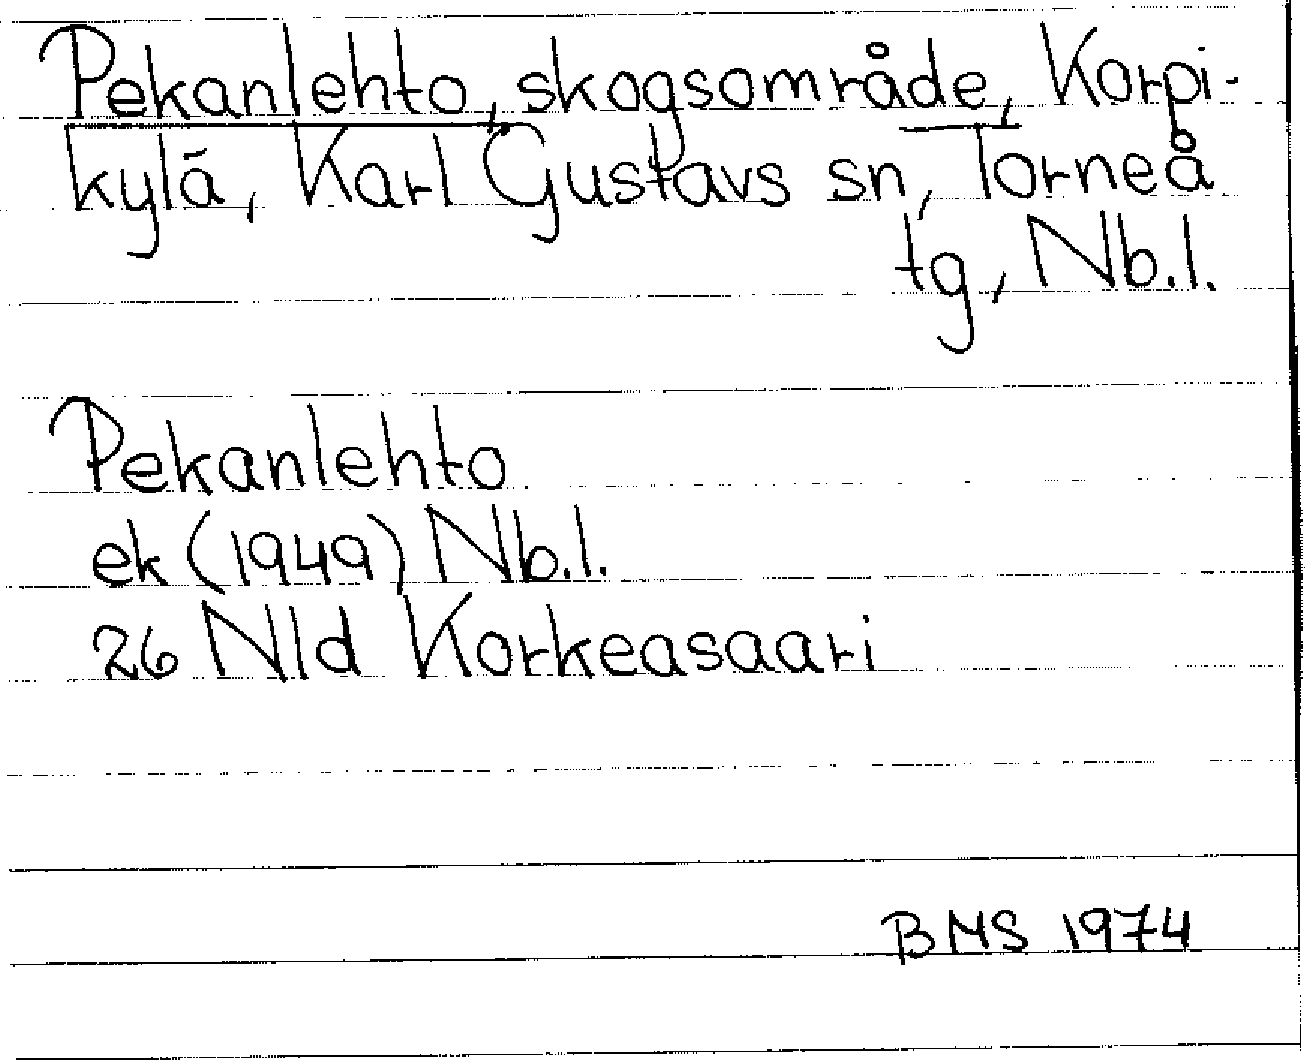 Pekanlehto, skogsområde, Korpi-
kylä, Karl Gustavs sn, Torneå
tg, Nb.l.
Pekanlehto
ek (1949) Nb.l.
26 Nld Korkeasaari
BMS 1974